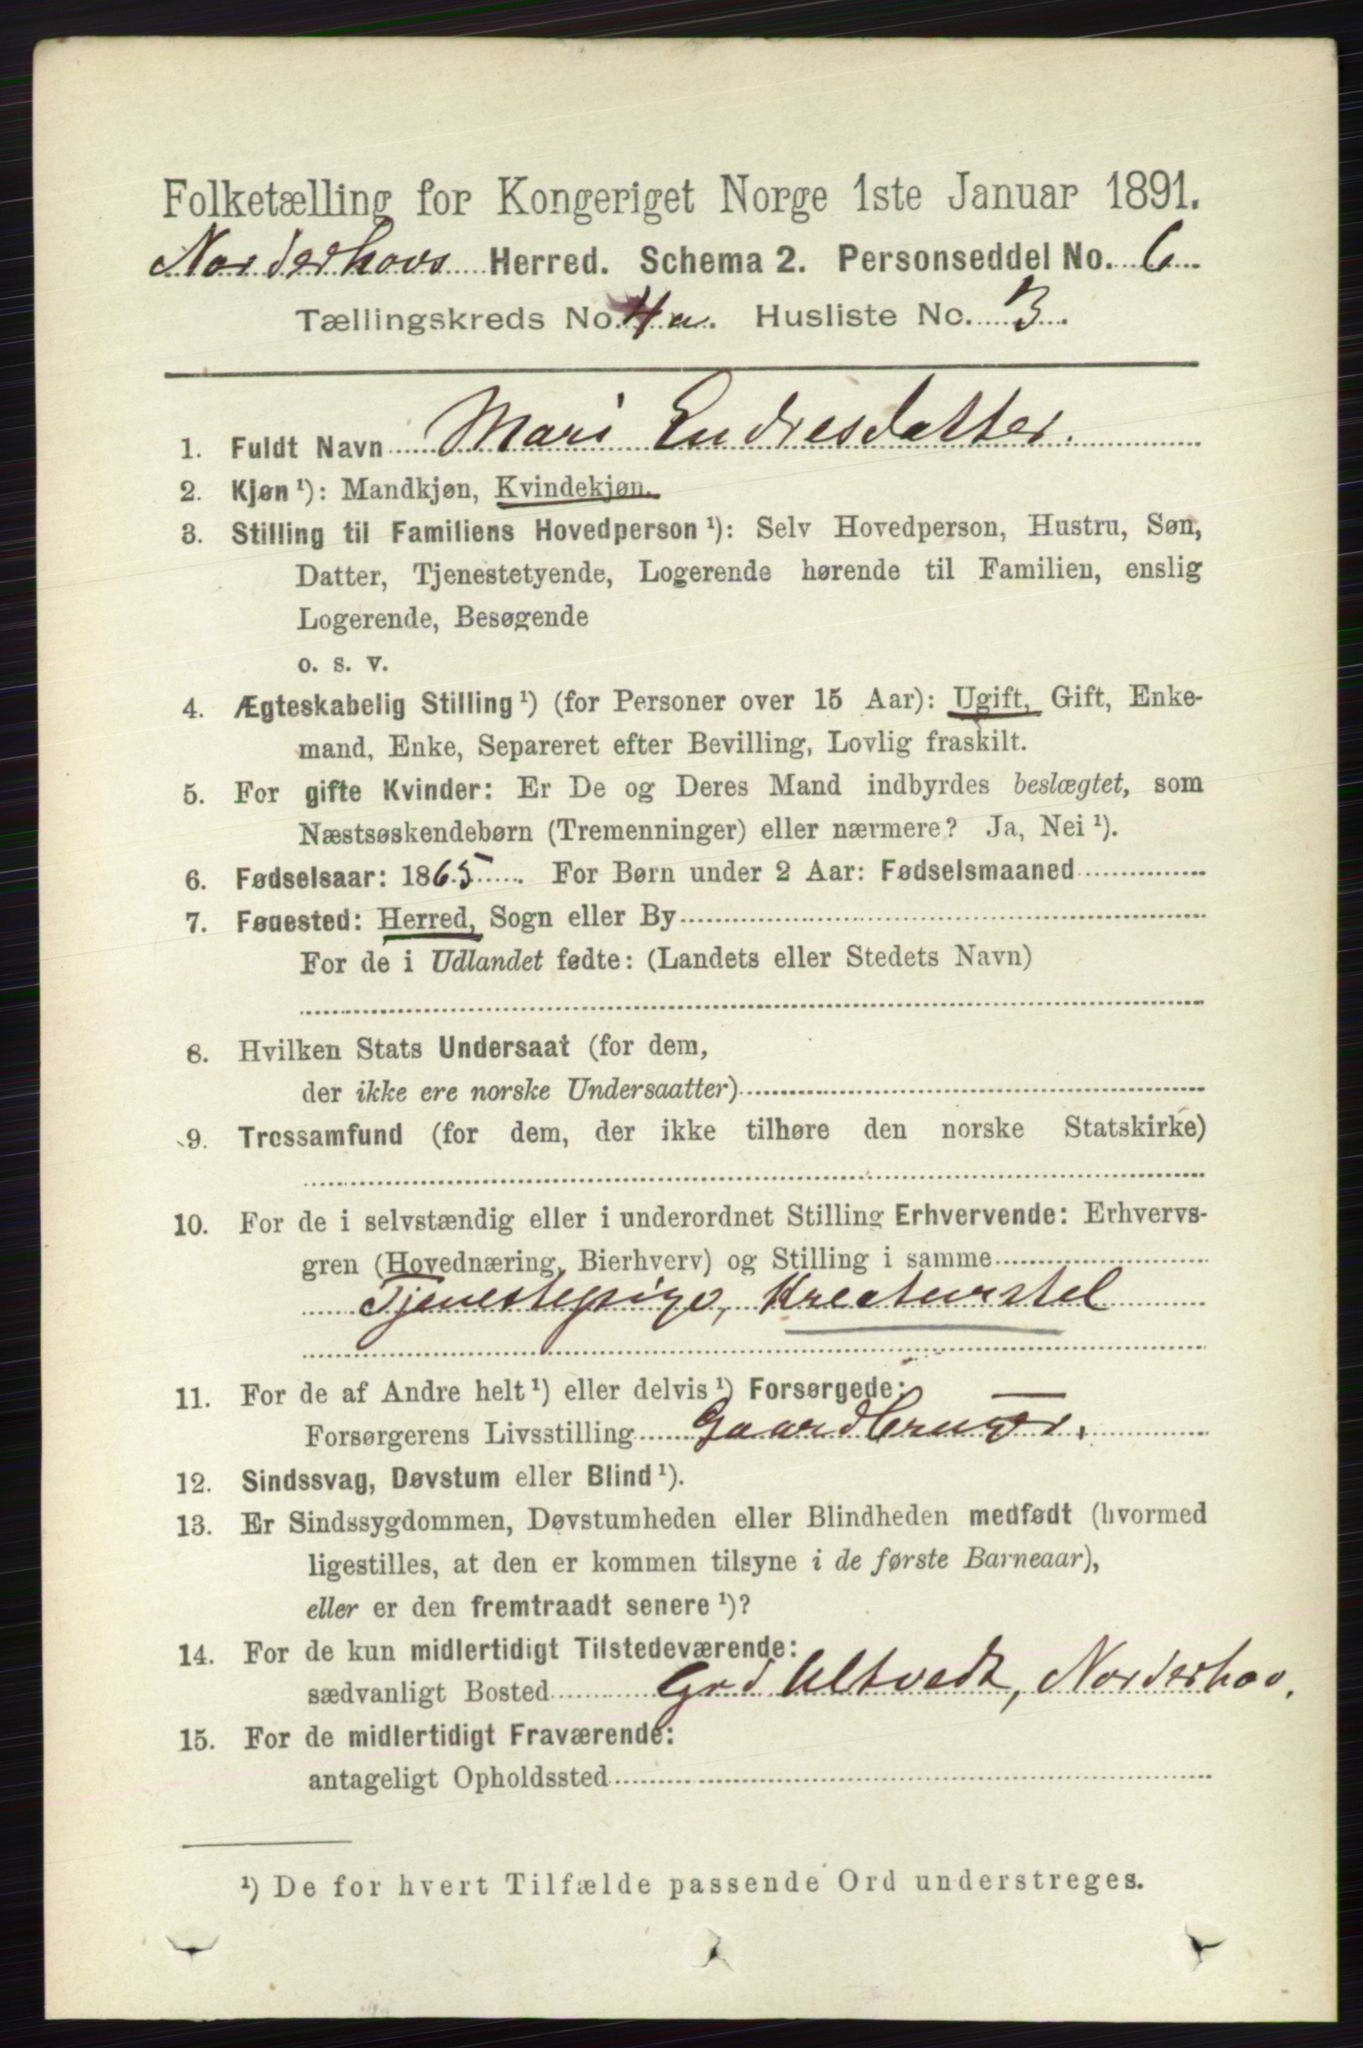 Folketælling for Kongeriget Norge 1ste Januar 1891.
Norderhovs Herred. Schema 2. Personseddel No. 6
Tællingskreds No. 4a. Husliste No. 3.
1. Fuldt Navn Mari Endresdatter.
2. Kjøn ¹): Mandkjøn, Kvindekjøn.
3. Stilling til Familiens Hovedperson ¹): Selv Hovedperson, Hustru, Søn,
Datter, Tjenestetyende, Logerende hørende til Familien, enslig
Logerende, Besøgende
o. s. v.
4. Ægteskabelig Stilling ¹) (for Personer over 15 Aar): Ugift, Gift, Enke-
mand, Enke, Separeret efter Bevilling, Lovlig fraskilt.
5. For gifte Kvinder: Er De og Deres Mand indbyrdes beslægtet, som
Næstsøskendebørn (Tremenninger) eller nærmere? Ja, Nei ¹).
6. Fødselsaar: 1865. For Børn under 2 Aar: Fødselsmaaned
7. Fødested: Herred, Sogn eller By
For de i Udlandet fødte: (Landets eller Stedets Navn)
8. Hvilken Stats Undersaat (for dem,
der ikke ere norske Undersaatter)
9. Trossamfund (for dem, der ikke tilhøre den norske Statskirke)
10. For de i selvstændig eller i underordnet Stilling Erhvervende: Erhvervs-
gren (Hovednæring, Bierhverv) og Stilling i samme
Tjenestepige, Kreaturstel
11. For de af Andre helt ¹) eller delvis ¹) Forsørgede:
Forsørgerens Livsstilling Gaardbruger.
12. Sindssvag, Døvstum eller Blind ¹).
13. Er Sindssygdommen, Døvstumheden eller Blindheden medfødt (hvormed
ligestilles, at den er kommen tilsyne i de første Barneaar),
eller er den fremtraadt senere ¹)?
14. For de kun midlertidigt Tilstedeværende:
sædvanligt Bosted Grd Ultvedt, Norderhov.
15. For de midlertidigt Fraværende:
antageligt Opholdssted
¹) De for hvert Tilfælde passende Ord understreges.